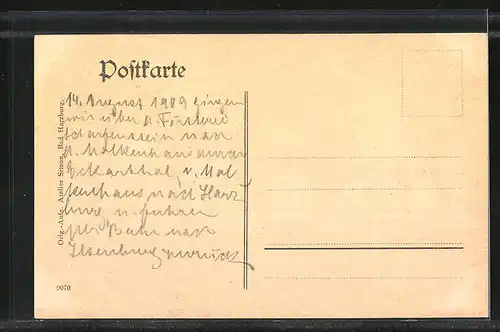 Postkarte
14. August 1909 gingen
wir über d. Försterei
Scharfenstein nach
d. Molkenhaus durch
Eckerthal, v. Mol
kenhaus nach Harz
burg u. fuhren
per Bahn nach
Ilsenburg zurück
Orig.-Aufn. Atelier Simon, Bad Harzburg.
9070